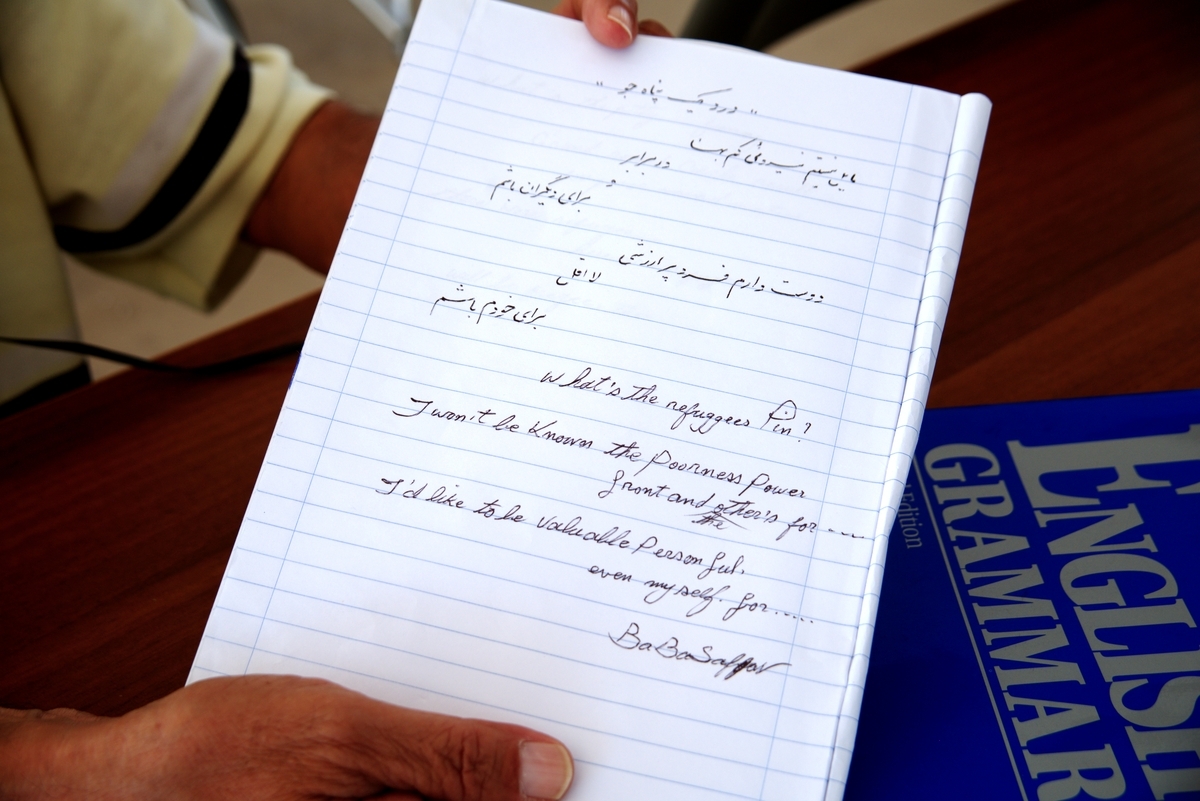 " درد یک پناه جو "
در برابر
برای دیگران باشم
دوست دارم فرد پر ارزشی
لااقل
برای خودم باشم
What's the refuggees Pin?
I won't be known the Poorness Power
front and other's for ----
the
I'd like to be valuable Person ful.
even myself. for.....
BaBaSaffar
ENGLISH
GRAMMAR
Edition